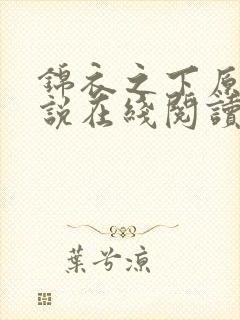 錦衣之下原
說在綫閱讀
葉兮涼